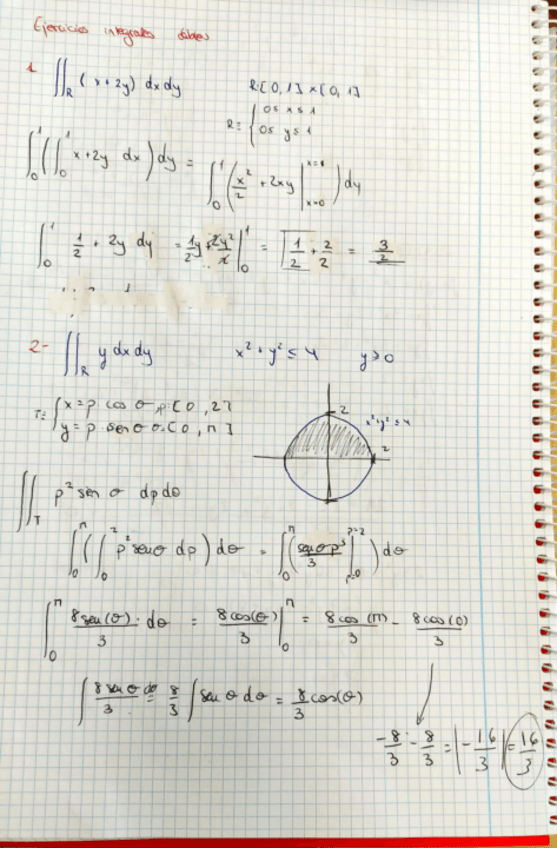 Ejercicios integrales dobles
1 ∬_R (x+2y) dxdy R:[0,1]×[0,1]
R= { 0≤x≤1
0≤y≤1
∫_0^1 (∫_0^1 x+2y dx) dy = ∫_0^1 (x²/2 + 2xy |_{x=0}^{x=1}) dy
∫_0^1 1/2 + 2y dy = 1/2 y + 2y²/2 |_0^1 = 1/2 + 2/2 = 3/2
2- ∬_R y dxdy x²+y²≤4 y≥0
T= { x=ρ cos θ ρ:[0,2]
y=ρ sen θ θ:[0,π]
2
x²+y²≤4
2
∬_T ρ² sen θ dρdθ
∫_0^π (∫_0^2 ρ² senθ dρ) dθ = ∫_0^π (senθ ρ³/3 |_{ρ=0}^{ρ=2}) dθ
∫_0^π 8sen(θ)/3 · dθ = 8cos(θ)/3 |_0^π = 8cos(π)/3 - 8cos(0)/3
∫ 8sen θ dθ/3 = 8/3 ∫ sen θ dθ = 8/3 cos(θ)
-8/3 - 8/3 = |-16/3| = 16/3